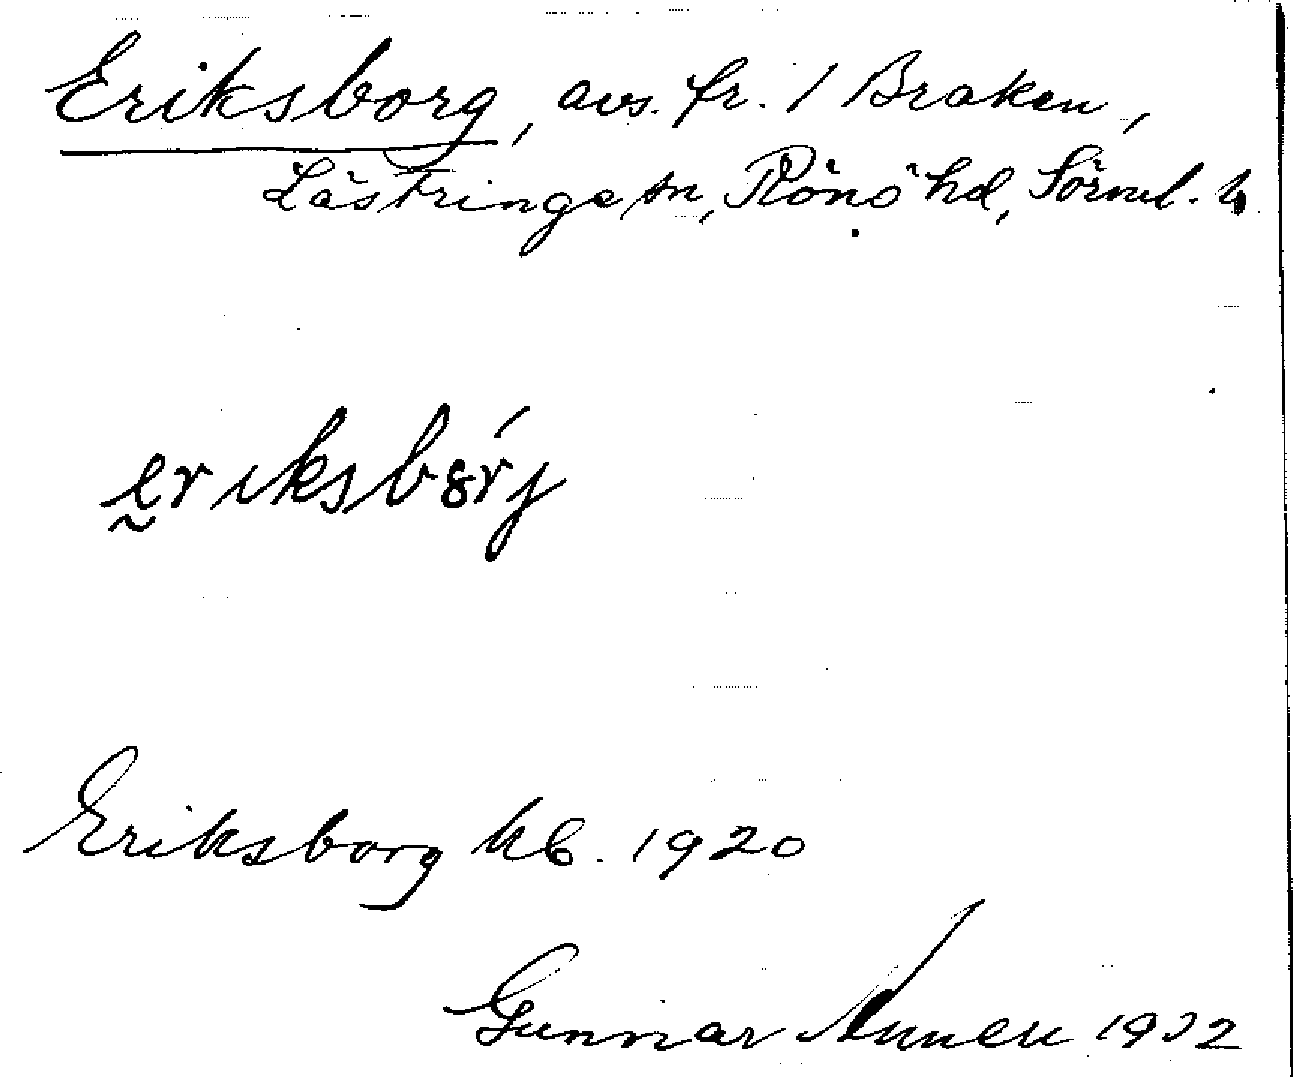 Eriksborg, avs. fr. 1 Braken,
Lästringe sn, Rönö hd, Sörml. l.
eriksborj
Eriksborg kb. 1920
Gunnar 1932